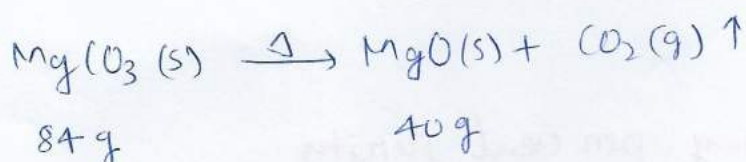 MgCO₃ (s) —Δ→ MgO(s) + CO₂(g) ↑
84 g 40 g